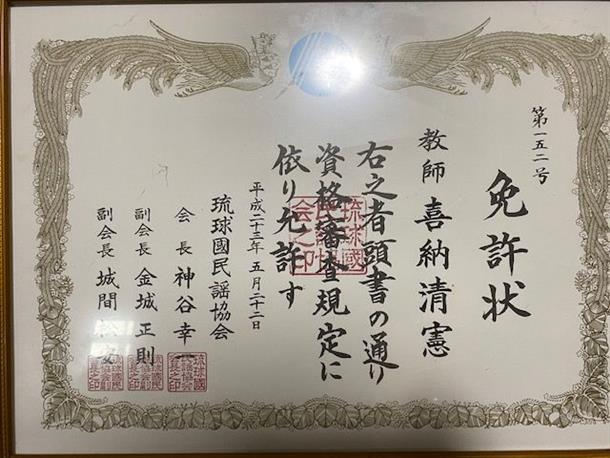 免許状
第一五二号
教師 喜納清憲
右之者頭書の通り
資格審査規定に
依り允許す
平成二十三年 五月二十二日
琉球國民謡協会
会長 神谷幸一
副会長 金城正則
副会長 城間 安